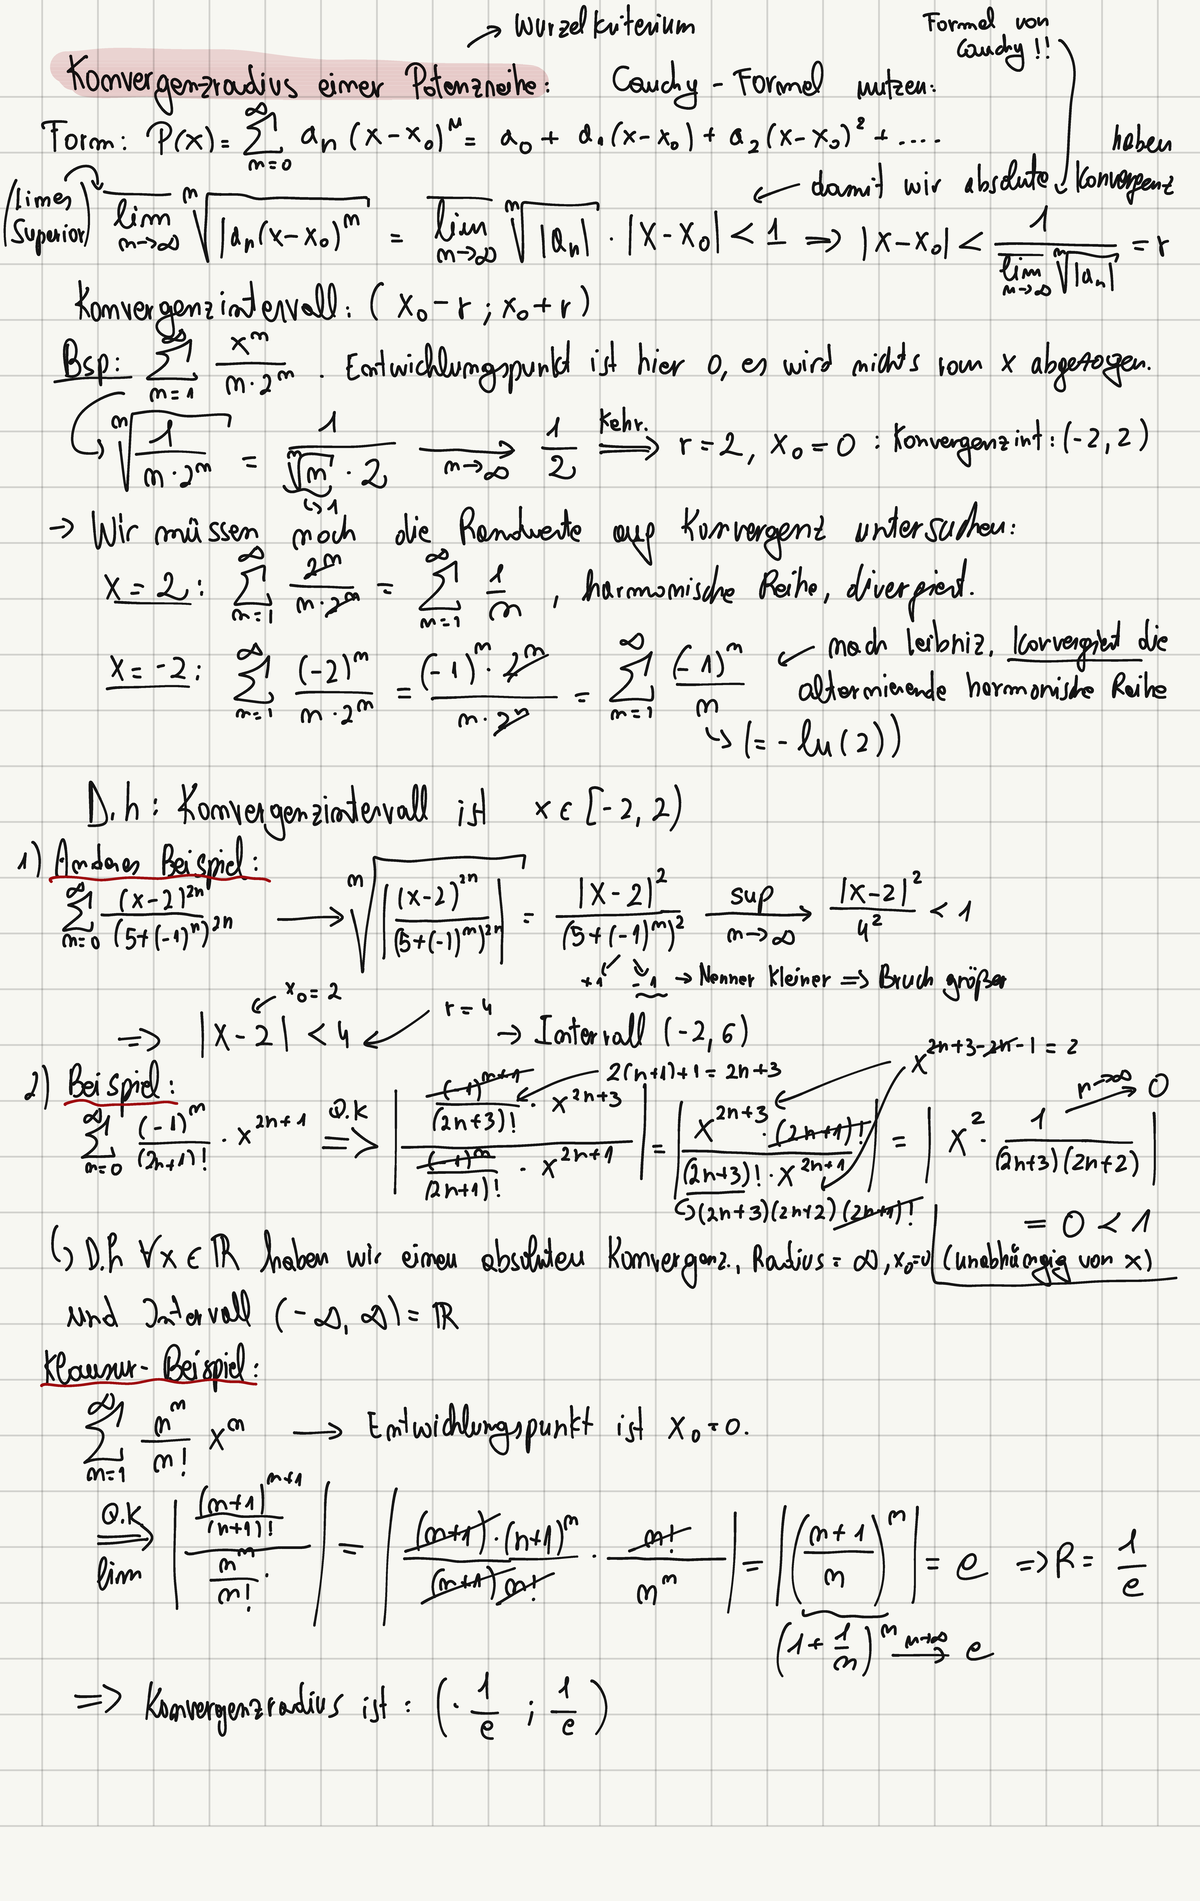 → Wurzelkriterium
Formel von Cauchy !!
Konvergenzradius einer Potenzreihe: Cauchy - Formel nutzen:
Form: P(x) = ∑_{n=0}^{∞} a_n (x-x_0)^n = a_0 + a_1(x-x_0) + a_2(x-x_0)^2 + ....
← damit wir absolute Konvergenz haben
(Limes Superior) \overline{lim}_{n→∞} \sqrt[n]{|a_n(x-x_0)^n} = \overline{lim}_{n→∞} \sqrt[n]{|a_n|} · |x-x_0| < 1 ⇒ |x-x_0| < 1/(\overline{lim}_{n→∞} \sqrt[n]{|a_n|}) = r
Konvergenzintervall: (x_0-r ; x_0+r)
Bsp: ∑_{n=1}^{∞} x^n/(n·2^n) . Entwicklungspunkt ist hier 0, es wird nichts vom x abgezogen.
\sqrt[n]{1/(n·2^n)} = 1/(\sqrt[n]{n}·2) →_{n→∞} 1/2 ⇒^{Kehr.} r = 2, x_0 = 0 : Konvergenzint: (-2,2)
↳1
→ Wir müssen noch die Randwerte auf Konvergenz untersuchen:
x = 2: ∑_{n=1}^{∞} 2^n/(n·2^n) = ∑_{n=1}^{∞} 1/n , harmonische Reihe, divergiert.
x = -2: ∑_{n=1}^{∞} (-2)^n/(n·2^n) = (-1)^n·2^n/(n·2^n) = ∑_{n=1}^{∞} (-1)^n/n ← nach Leibniz, konvergiert die
alternierende harmonische Reihe
↳ (= -ln(2))
D.h: Konvergenzintervall ist x ∈ [-2, 2)
1) Anderes Beispiel:
∑_{n=0}^{∞} (x-2)^{2n}/(5+(-1)^n)^{2n} → \sqrt[n]{|(x-2)^{2n}/(5+(-1)^n)^{2n}|} = |x-2|^2/(5+(-1)^n)^2 →^{sup}_{n→∞} |x-2|^2/4^2 < 1
+1 -1 → Nenner kleiner ⇒ Bruch größer
x_0=2 r=4
⇒ |x-2| < 4 → Intervall (-2,6)
2) Beispiel: 2(n+1)+1 = 2n+3 x^{2n+3-2n-1} = 2
∑_{n=0}^{∞} (-1)^n/(2n+1)! · x^{2n+1} ⇒^{Q.K} |((-1)^{n+1}/(2n+3)! · x^{2n+3})/((-1)^n/(2n+1)! · x^{2n+1})| = |(x^{2n+3}·(2n+1)!)/((2n+3)!·x^{2n+1})| = |x^2 · 1/((2n+3)(2n+2))| n→∞ 0
↳(2n+3)(2n+2)(2n+1)!
= 0 < 1
↳ D.h ∀x ∈ ℝ haben wir einen absoluten Konvergenz, Radius = ∞, x_0=0 (unabhängig von x)
und Intervall (-∞, ∞) = ℝ
Klausur- Beispiel:
∑_{n=1}^{∞} n^n/n! x^n → Entwicklungspunkt ist x_0=0.
⇒^{Q.K}_{lim} |((n+1)^{n+1}/(n+1)!)/(n^n/n!)·| = |((n+1)·(n+1)^n)/((n+1)n!) · n!/n^n| = |((n+1)/n)^n| = e ⇒ R = 1/e
(1+1/n)^n →_{n→∞} e
⇒ Konvergenzradius ist : (-1/e ; 1/e)